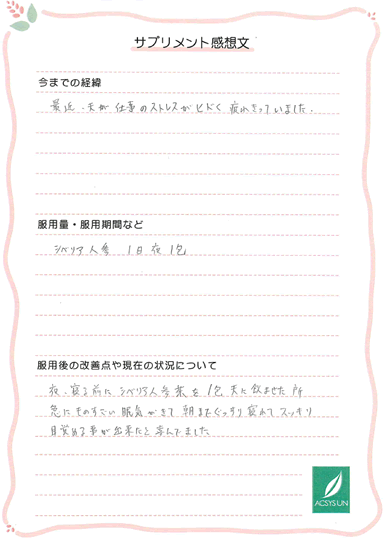 サプリメント感想文
今までの経緯
最近、夫が仕事のストレスがひどく疲れきっていました。
服用量・服用期間など
シベリア人参 1日夜1包
服用後の改善点や現在の状況について
夜、寝る前にシベリア人参茶を1包夫に飲ませた所
急にものすごい眠気がきて朝までぐっすり寝れてスッキリ
目覚める事が出来たと喜んでました
ACSYSUN